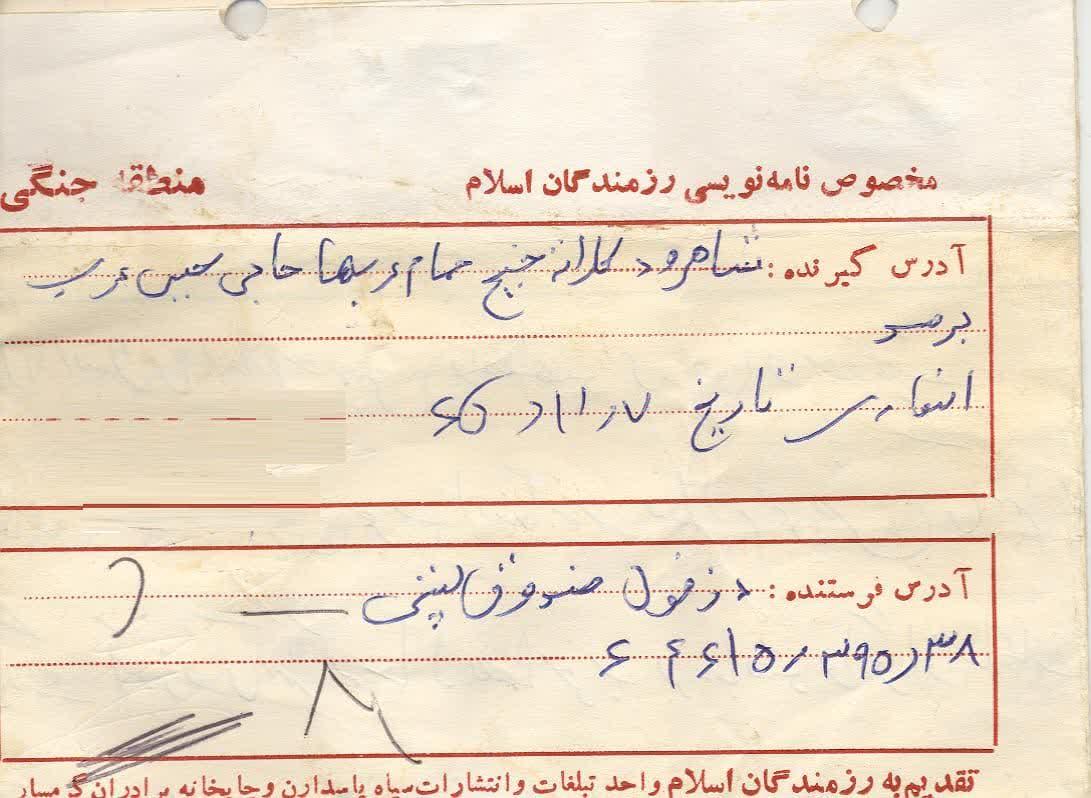 مخصوص نامه‌نویسی رزمندگان اسلام منطقه جنگی
آدرس گیرنده: شاهرود کلاته خیج حاجی عرب
برسد
تاریخ ۷ ر ۱۱ ر ۶۵
آدرس فرستنده: دزفول صندوق پستی
۳۸ ر ۳۹۵ ر ۶۴۶۱۵
۸
تقدیم به رزمندگان اسلام واحد تبلغات و انتشارات سپاه پاسدارن و چاپخانه برادران گرمسار